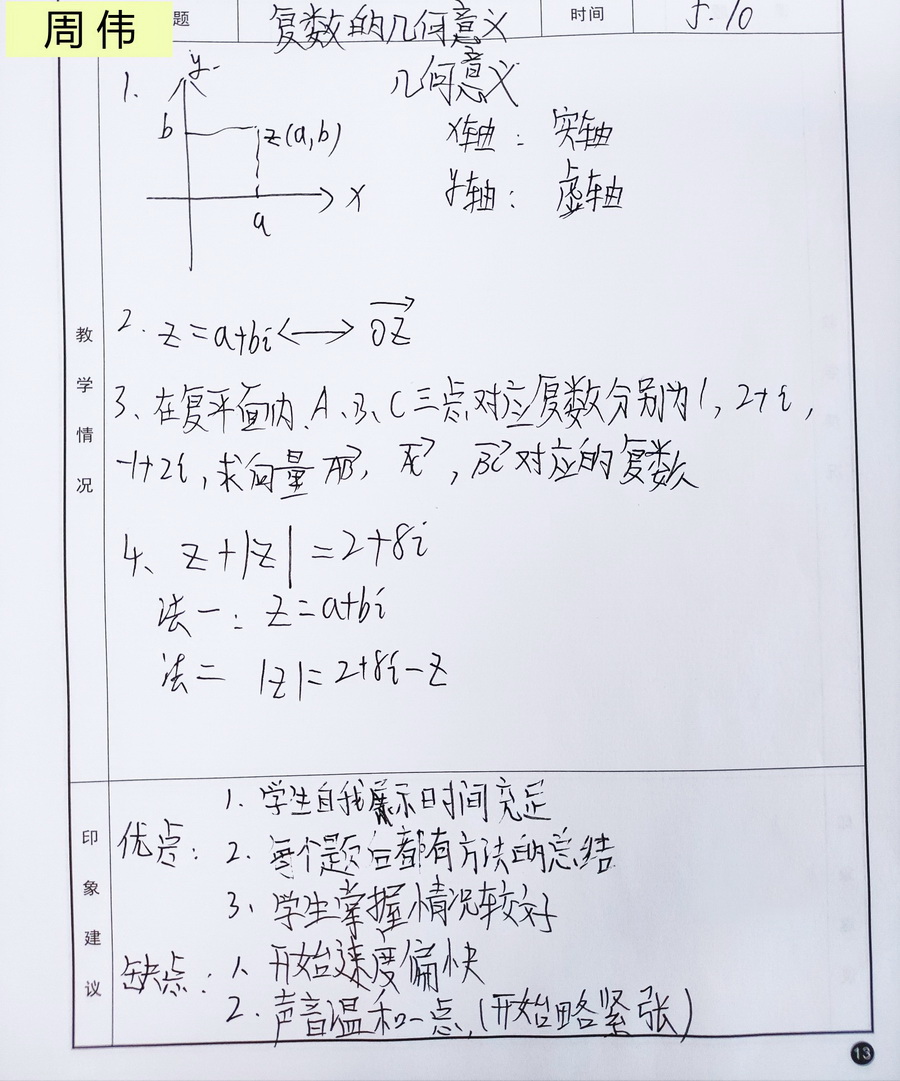 周伟
题 复数的几何意义 时间 5.10
1. y b z(a,b) a x
几何意义
x轴：实轴
y轴：虚轴
教学情况
2. z=a+bi⟷OZ
3、在复平面内、A、B、C三点对应复数分别为1, 2+i,
-1+2i,求向量AB, AC, BC对应的复数
4、z+|z|=2+8i
法一：z=a+bi
法二 |z|=2+8i-z
印象建议
优点：1. 学生自我展示时间充足
2. 每个题后都有方法的总结
3、学生掌握情况较好
缺点：1. 开始速度偏快
2. 声音温和一点,(开始略紧张)
13